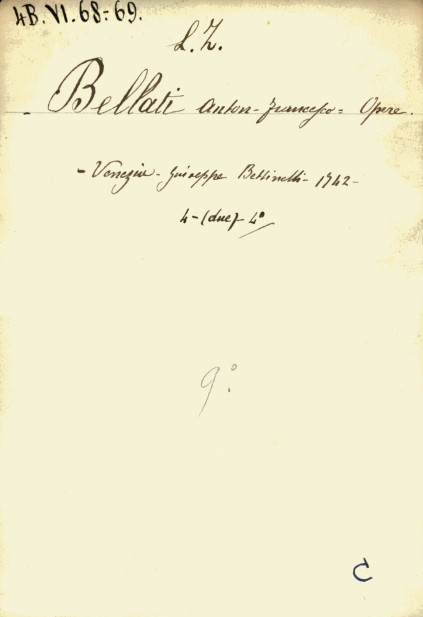 4B.VI.68-69.
L.Z.
- Bellati Anton-Francesco= Opere.
- Venezia - Giuseppe Bettinelli- 1742-
4-(due)- 4º
9º.
C